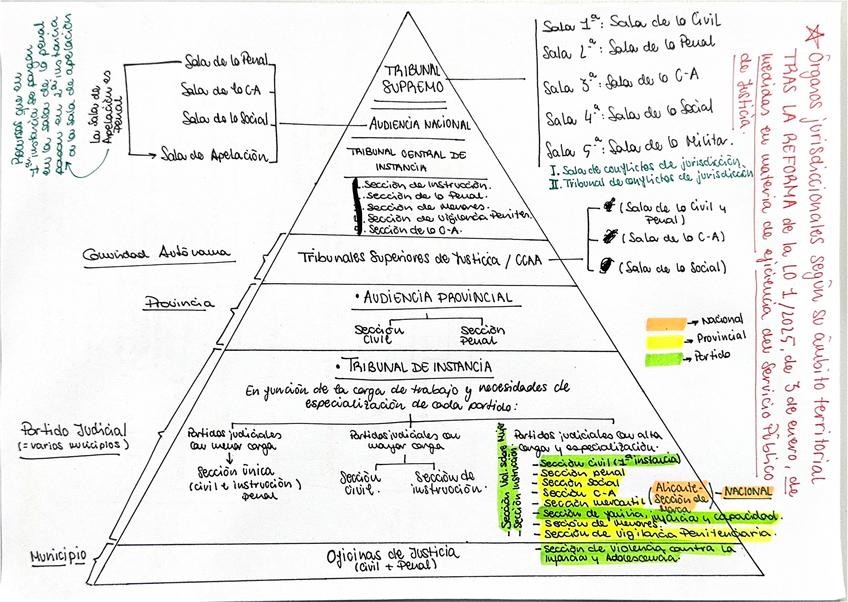 ☆ Órganos jurisdiccionales según su ámbito territorial
TRAS LA REFORMA de la LO 1/2025, de 3 de enero, de
medidas en materia de eficiencia del Servicio Público
de Justicia.
Recursos que en
1ª instancia se pongan
en la sala de lo penal
pasan en 2ª instancia
→ a la sala de apelación
La sala de
Apelación es
Penal
Sala de lo Penal
Sala de lo C-A
Sala de lo Social
Sala de Apelación
TRIBUNAL
SUPREMO
Sala 1ª: Sala de lo Civil
Sala 2ª: Sala de lo Penal
Sala 3ª: Sala de lo C-A
Sala 4ª: Sala de lo Social
Sala 5ª: Sala de lo Militar.
I. Sala de conflictos de jurisdicción.
II. Tribunal de conflictos de jurisdicción
AUDIENCIA NACIONAL
TRIBUNAL CENTRAL DE
INSTANCIA
Sección de Instrucción.
Sección de lo Penal.
Sección de Menores.
Sección de Vigilancia Peniten.
Sección de lo C-A.
Comunidad Autónoma
Tribunales Superiores de Justicia / CCAA
(Sala de lo Civil y
Penal)
(Sala de lo C-A)
(Sala de lo Social)
Provincia
• AUDIENCIA PROVINCIAL
Sección
Civil
Sección
Penal
→ Nacional
→ Provincial
→ Partido
Partido Judicial
(= varios municipios)
• TRIBUNAL DE INSTANCIA
En función de la carga de trabajo y necesidades de
especialización de cada partido:
Partidos judiciales
con menor carga
↓
Sección única
(civil e instrucción)
penal
Partidos judiciales con
mayor carga
Sección
Civil.
Sección de
instrucción.
Partidos judiciales con alta
carga y especialización.
- Sección Viol. sobre Mujer
- Sección Instrucción
- Sección Civil (1ª instancia)
- Sección penal
- Sección social
- Sección C-A
- Sección mercantil (Alicante-
Sección de
Marca) - NACIONAL
- Sección de familia, infancia y capacidad.
- Sección de menores.
- Sección de Vigilancia Penitenciaria.
- Sección de violencia contra la
Infancia y Adolescencia.
Municipio
Oficinas de Justicia
(Civil + Penal)